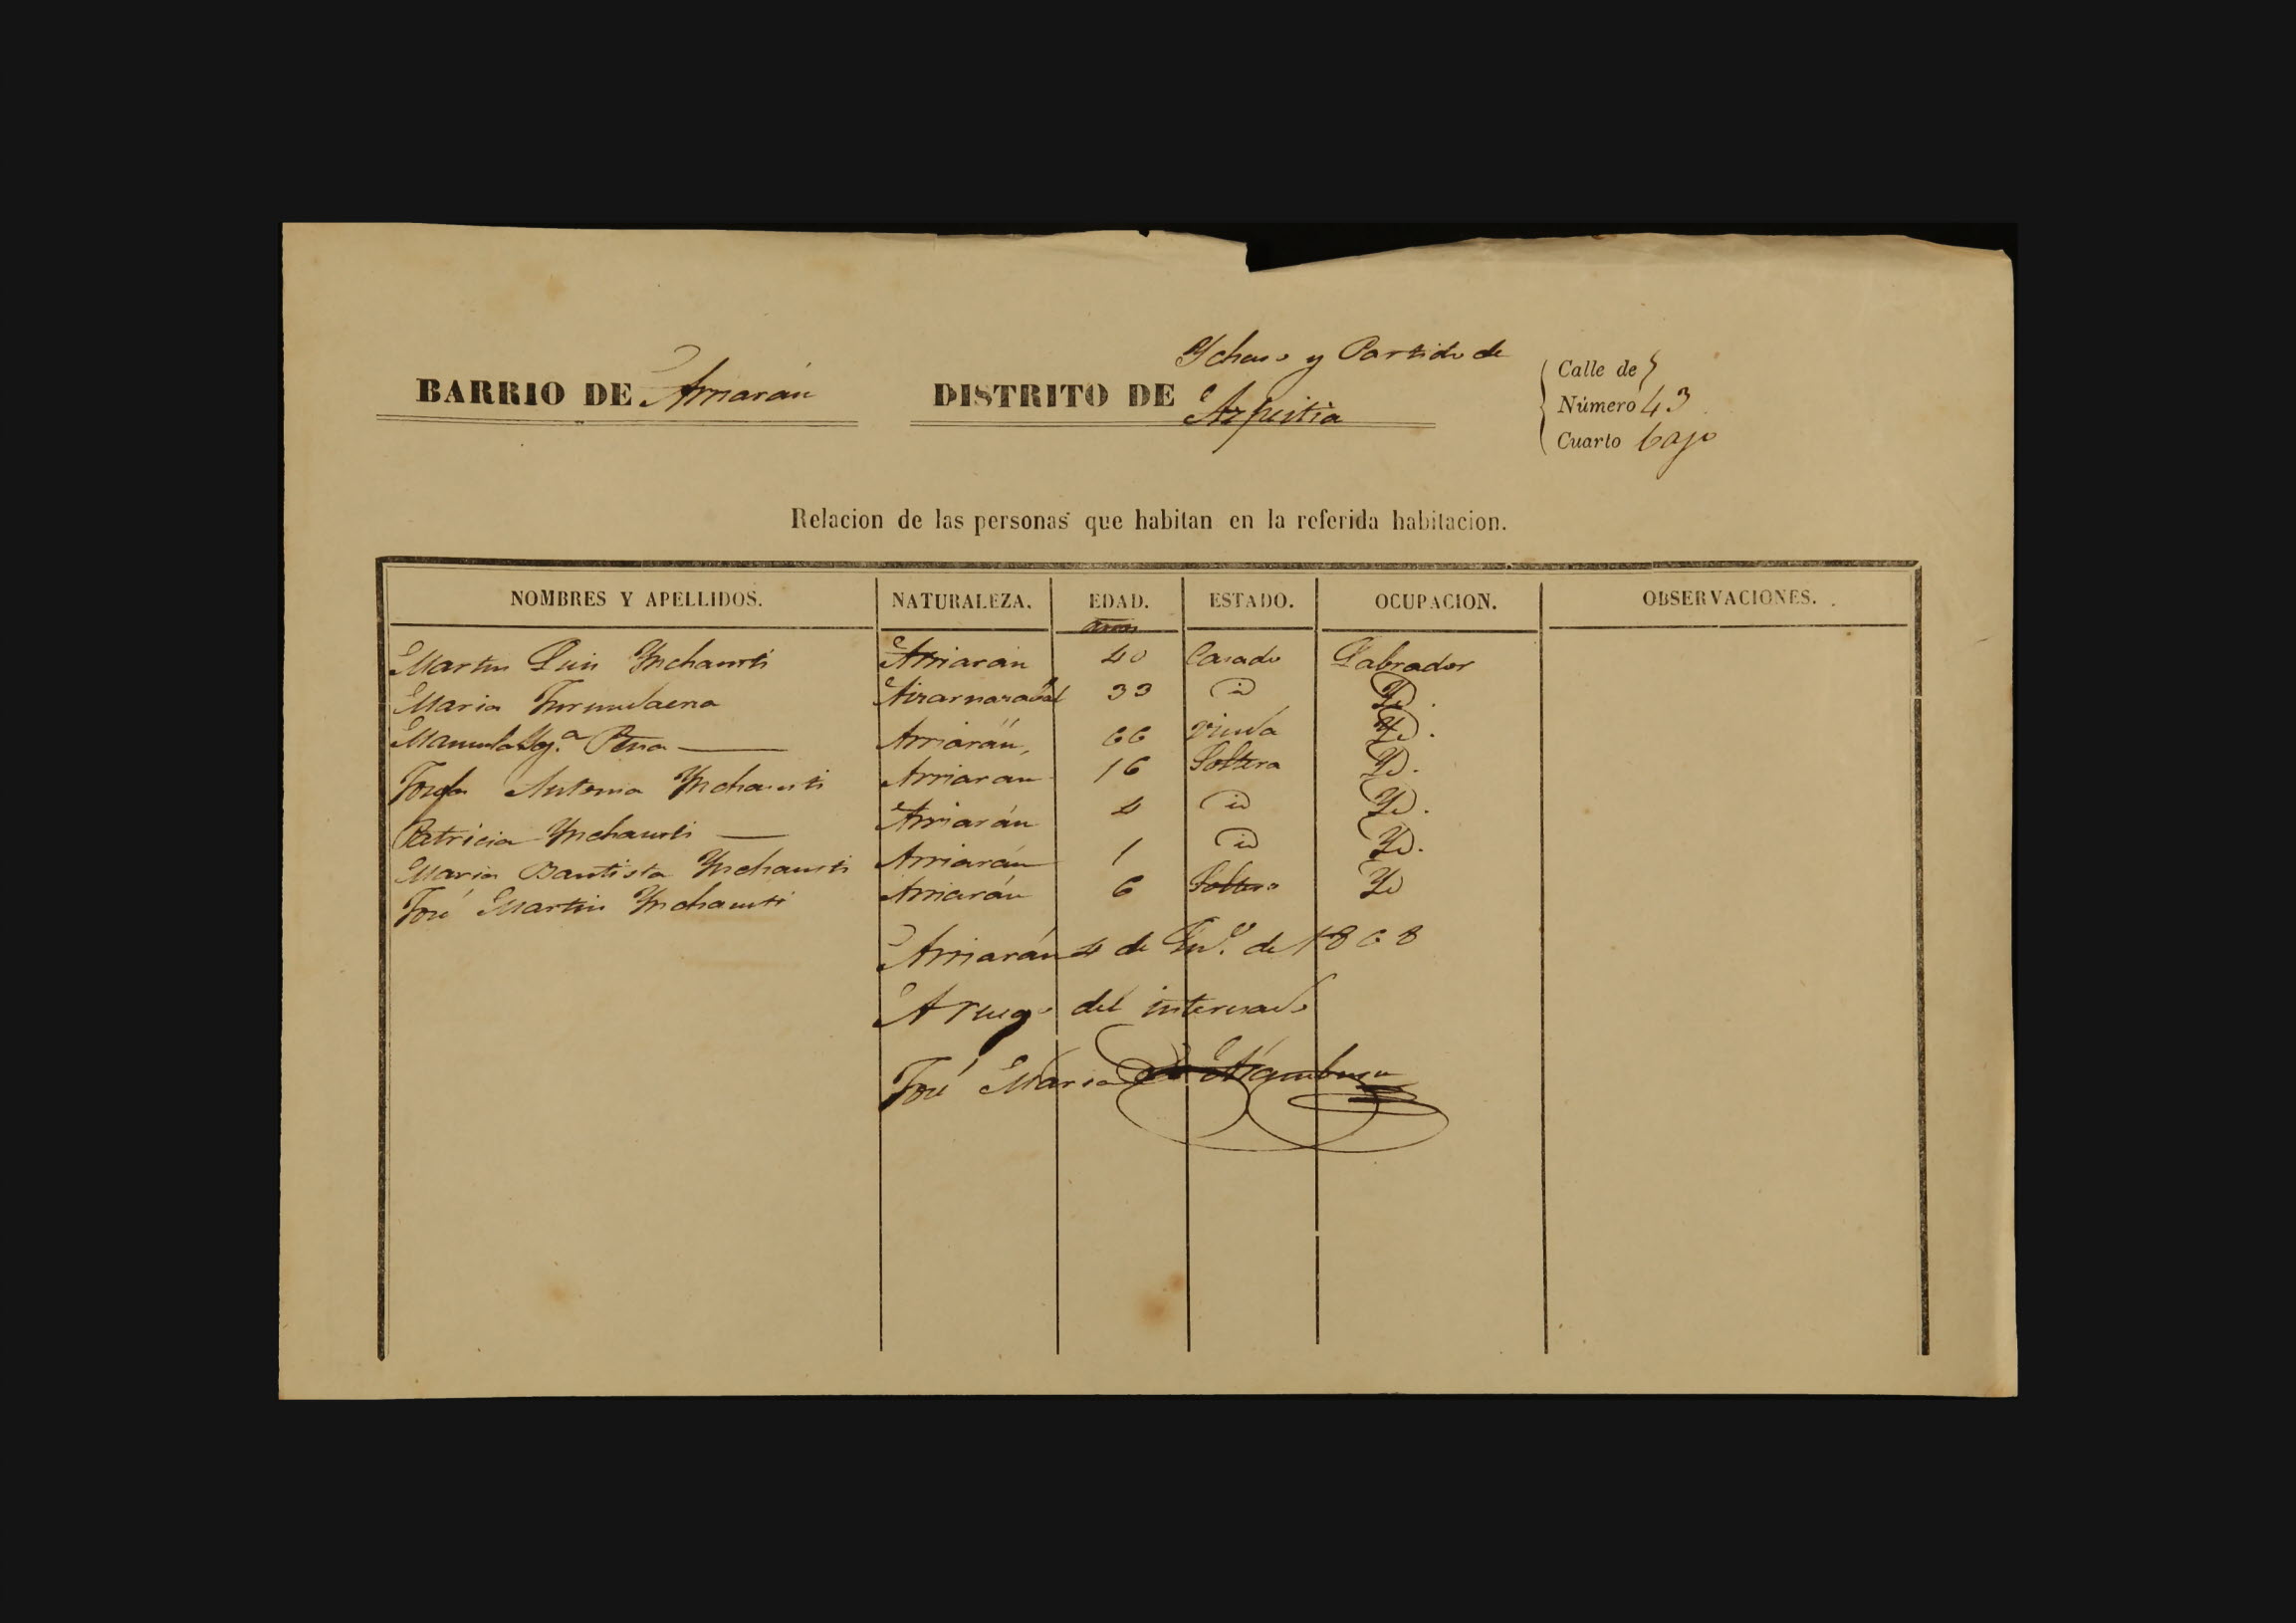 Ychaso y Partido de
BARRIO DE Arriarán DISTRITO DE Azpeitia
Calle de
Número 43
Cuarto bajo
Relacion de las personas que habitan en la referida habitacion.
NOMBRES Y APELLIDOS. NATURALEZA. EDAD. ESTADO. OCUPACION. OBSERVACIONES.
años
Martin Luis Ynchausti Arriarán 40 Casado Labrador
Maria 33 id Yd.
Manuela Pena Arriarán, 66 viuda Yd.
Josefa Antonia Ynchausti Arriarán 16 Soltera Yd.
Patricia Ynchausti Arriarán 4 id Yd.
Maria Bautista Ynchausti Arriarán 1 id Yd.
José Martin Ynchausti Arriarán 6 Soltero Yd
Arriarán 4 de En.º de 1868
A ruego del interesado
José Maria de